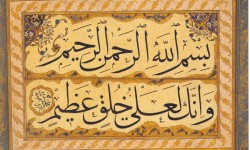 بسم الله الرحمن الرحيم
وإنك لعلى خلق عظيم